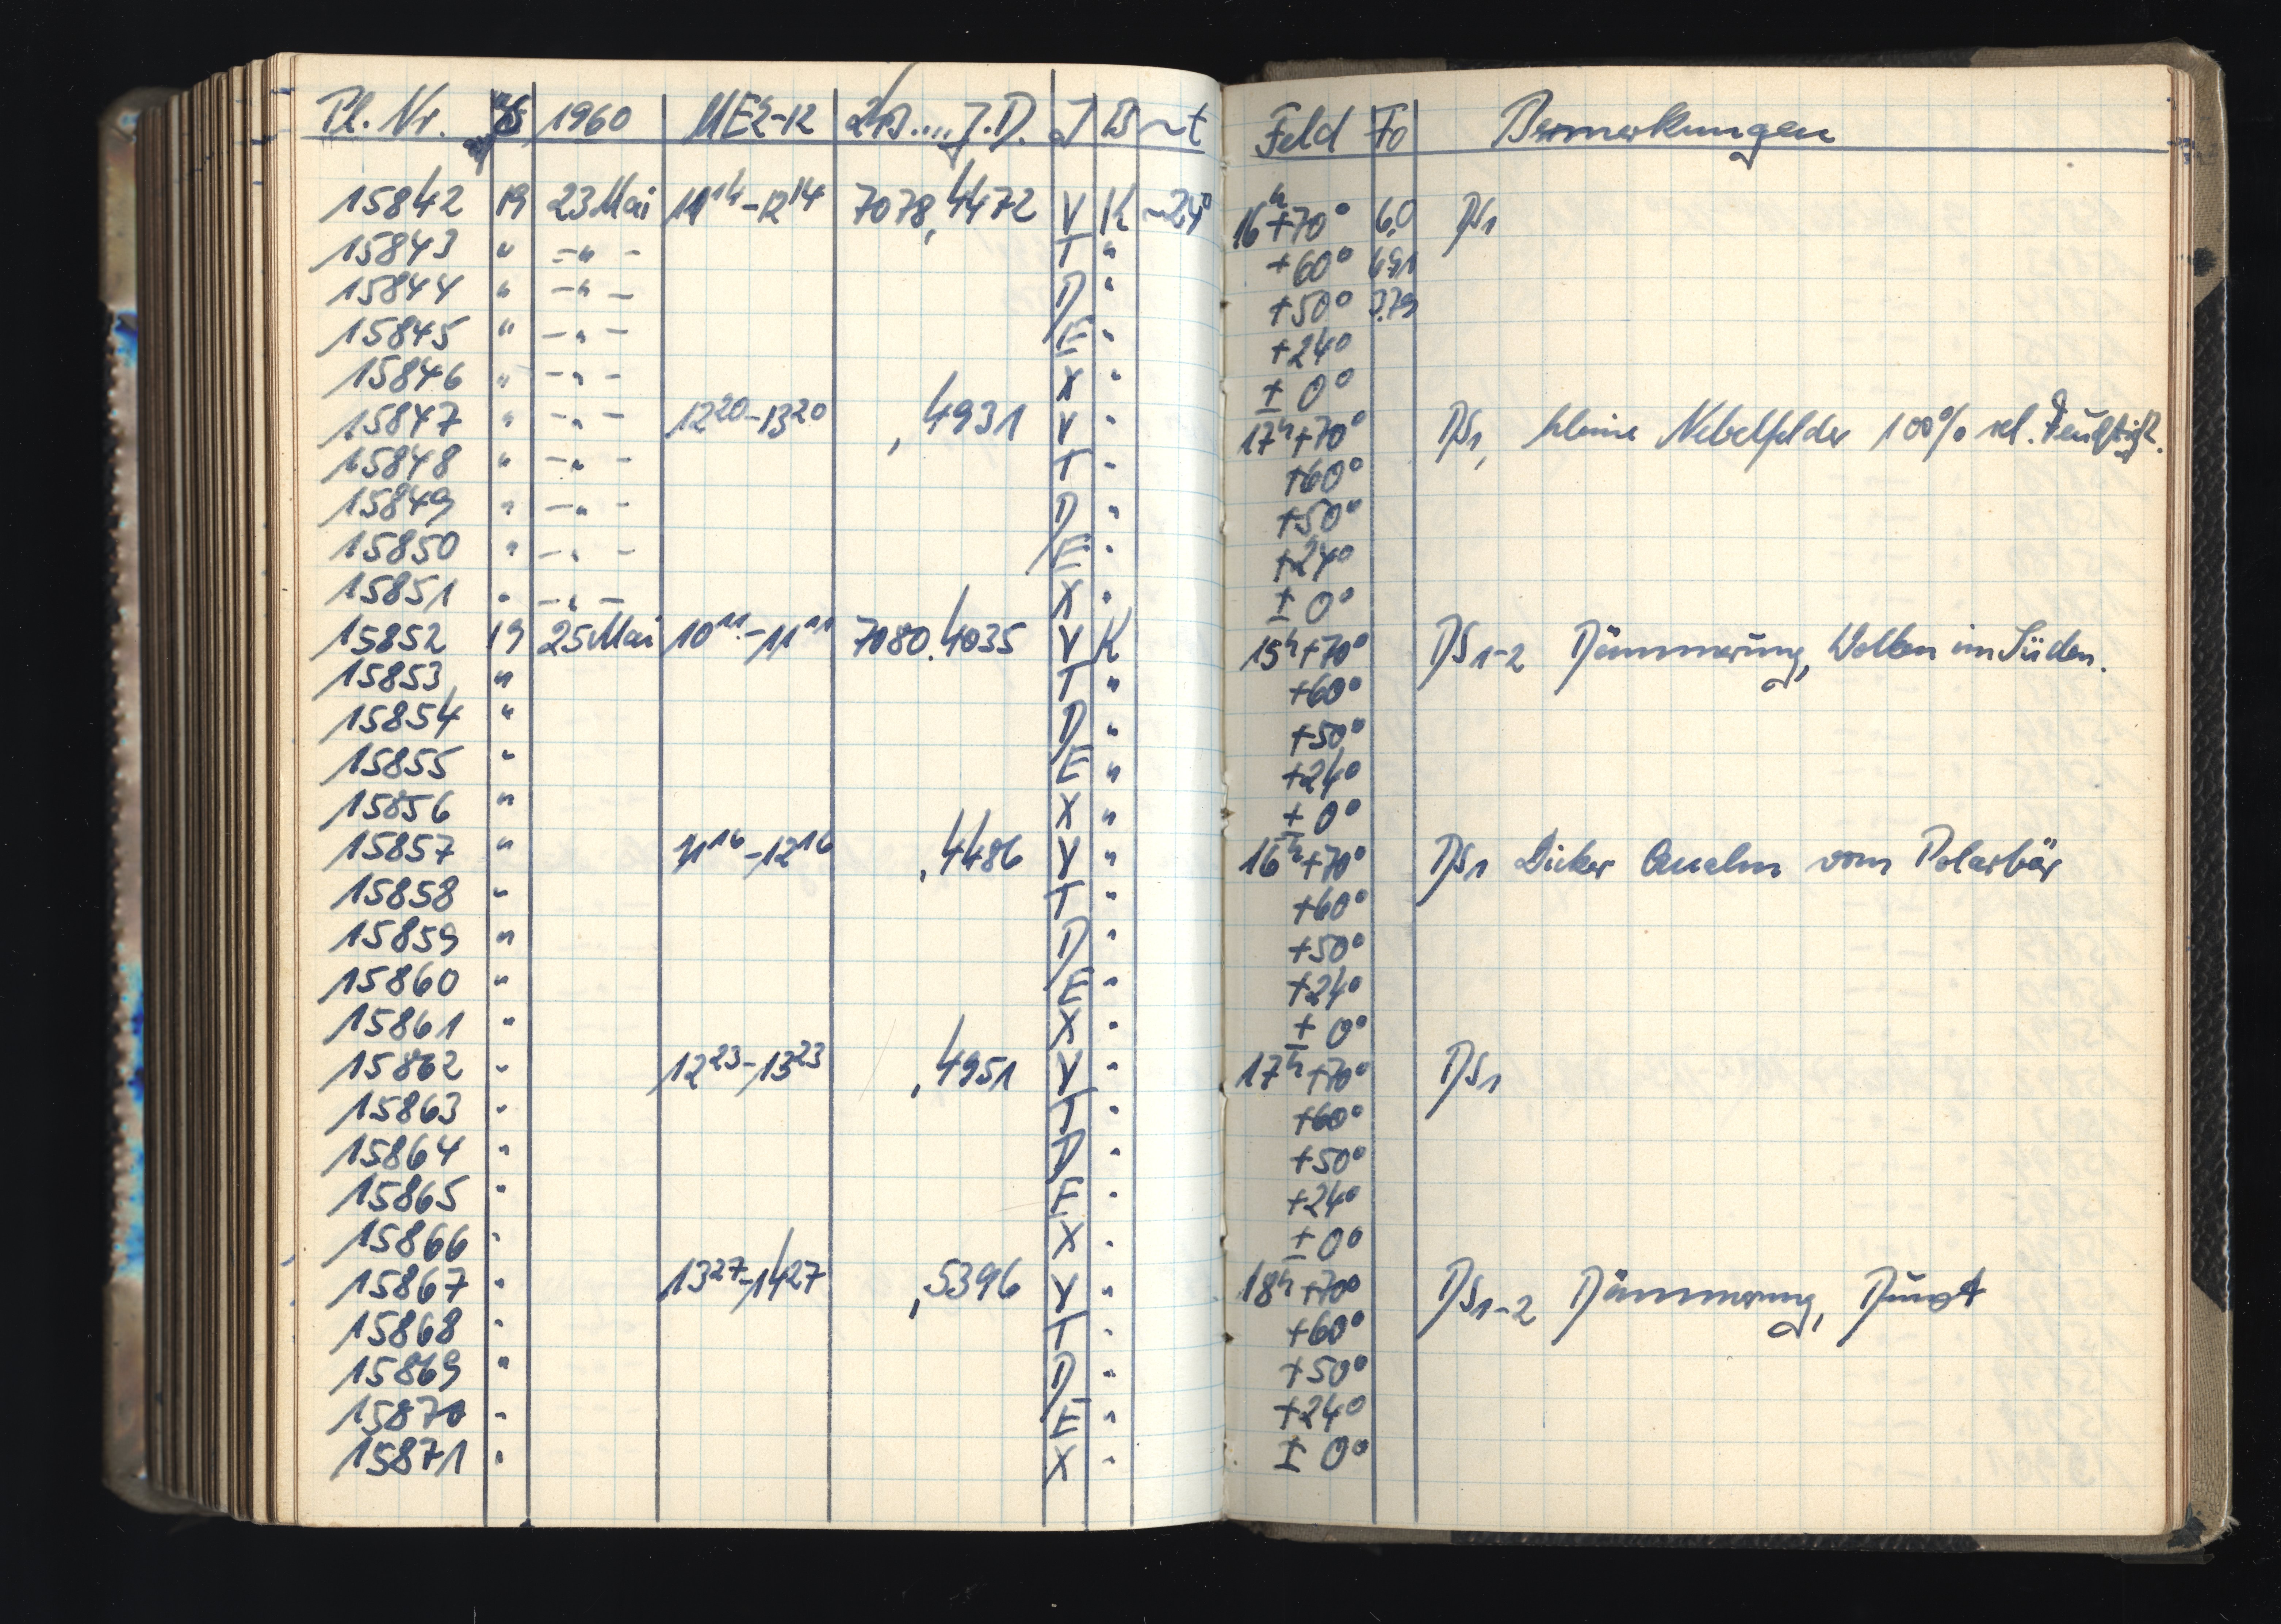 Pl. Nr. 1960 MEZ-12 243.... J.D. J B ~t Feld Fo Bemerkungen
15842 19 23 Mai 11 14 - 12 14 7078,4472 V K 16 h +70° 6,0 DS1
15843 " - " - T " +60° 6,91
15844 " - " - D " +50° 7.79
15845 " - " - E " +24°
15846 " - " - X " ± 0°
15847 " - " - 12 20 - 13 20 ,4931 V " 17 h +70° DS1, kleine Nebelfelder 100% rel. Feuchtigk.
15848 " - " - T " +60°
15849 " - " - D " +50°
15850 " - " - E " +24°
15851 " - " - X " ± 0°
15852 19 25 Mai 10 11 - 11 11 7080.4035 V K 15 h +70° DS1-2 Dämmerung, Wolken im Süden.
15853 " T " +60°
15854 " D " +50°
15855 " E " +24°
15856 " X " ± 0°
15857 " 11 16 - 12 16 ,4486 V " 16 h +70° DS1 Dicker Qualm vom Polarbär
15858 " T " +60°
15859 " D " +50°
15860 " E " +24°
15861 " X " ± 0°
15862 " 12 23 - 13 23 ,4951 V " 17 h +70° DS1
15863 " T " +60°
15864 " D " +50°
15865 " E " +24°
15866 " X " ± 0°
15867 " 13 27 - 14 27 ,5396 V " 18 h +70° DS1-2 Dämmerung, Dunst
15868 " T " +60°
15869 " D " +50°
15870 " E " +24°
15871 " X " ± 0°